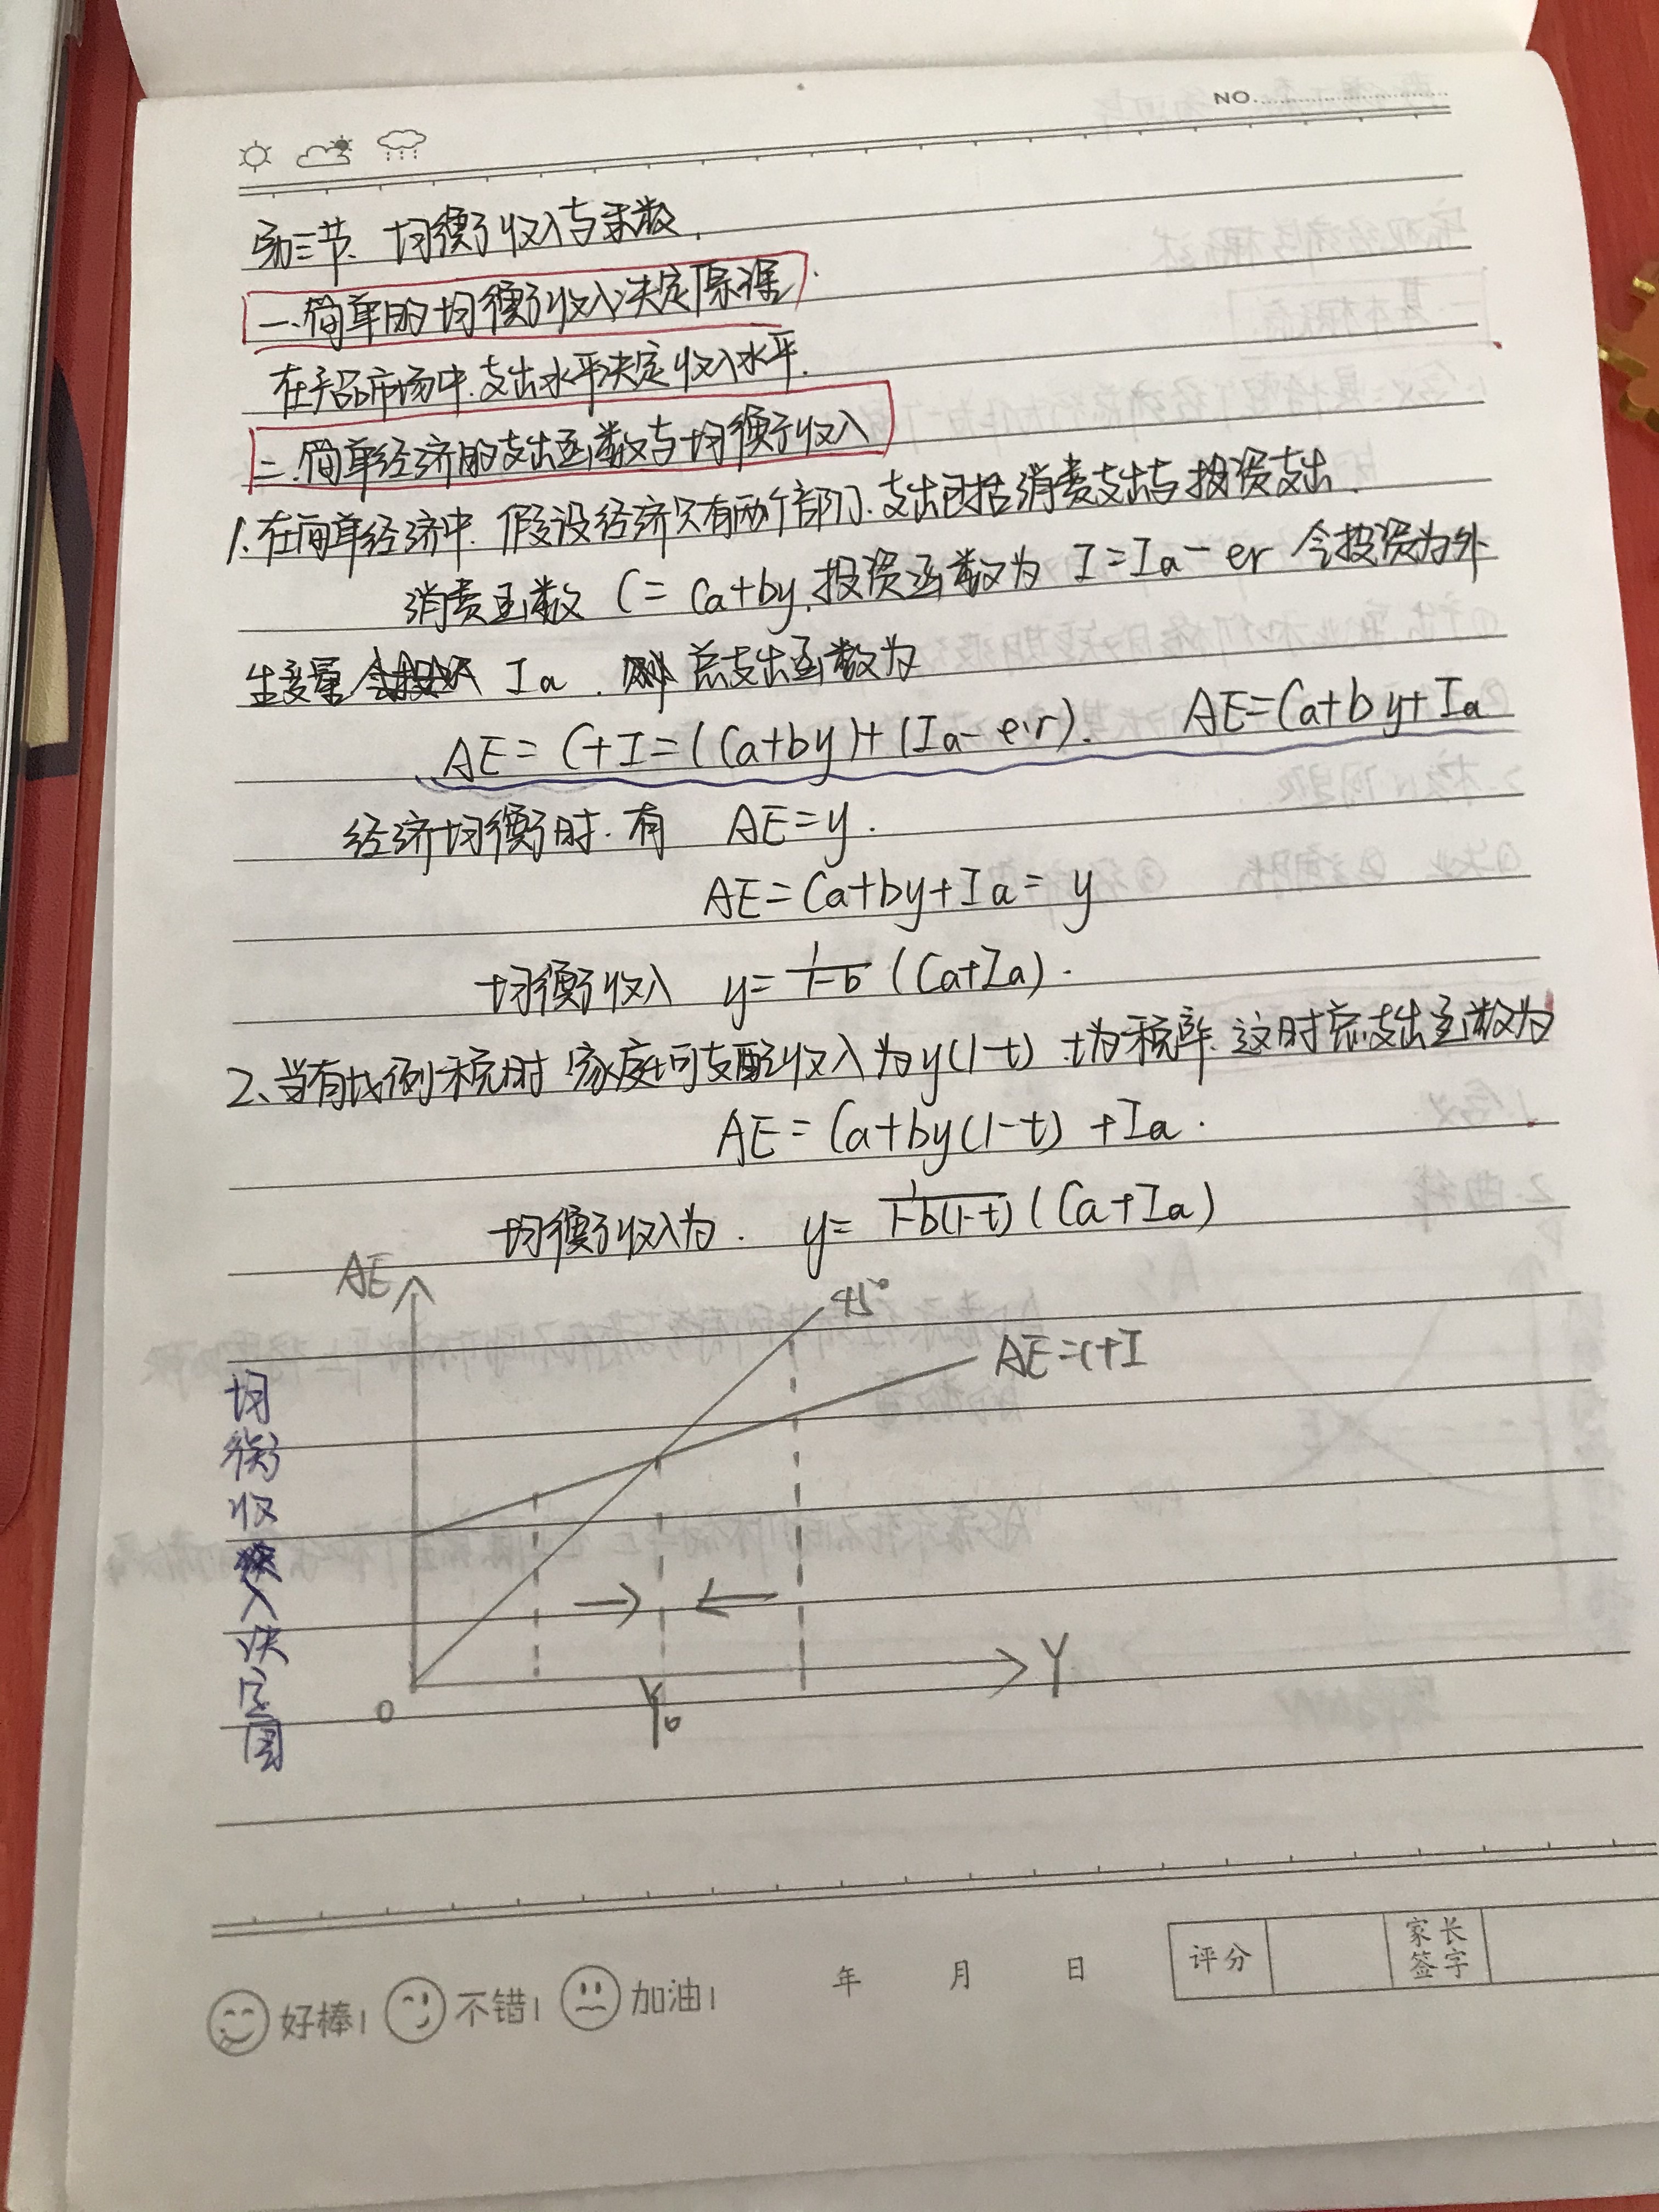 NO.
第三节、均衡收入与乘数.
一.简单的均衡收入决定原理.
在产品市场中.支出水平决定收入水平.
二.简单经济的支出函数与均衡收入
1.在简单经济中.假设经济只有两个部门.支出包括消费支出与投资支出.
消费函数 C=Ca+by.投资函数为 I=Ia-er 令投资为外
生变量 Ia. 总支出函数为
AE=C+I=(Ca+by)+(Ia-e·r). AE=Ca+by+Ia
经济均衡时.有 AE=y.
AE=Ca+by+Ia=y
均衡收入 y=1/1-b (Ca+Ia).
2、当有比例税时 家庭可支配收入为y(1-t).t为税率.这时总支出函数为
AE=Ca+by(1-t)+Ia.
均衡收入为. y=1/1-b(1-t) (Ca+Ia)
AE
45°
AE=C+I
均衡收入决定图
Y
0
Y₀
好棒! 不错! 加油! 年 月 日 评分 家长签字